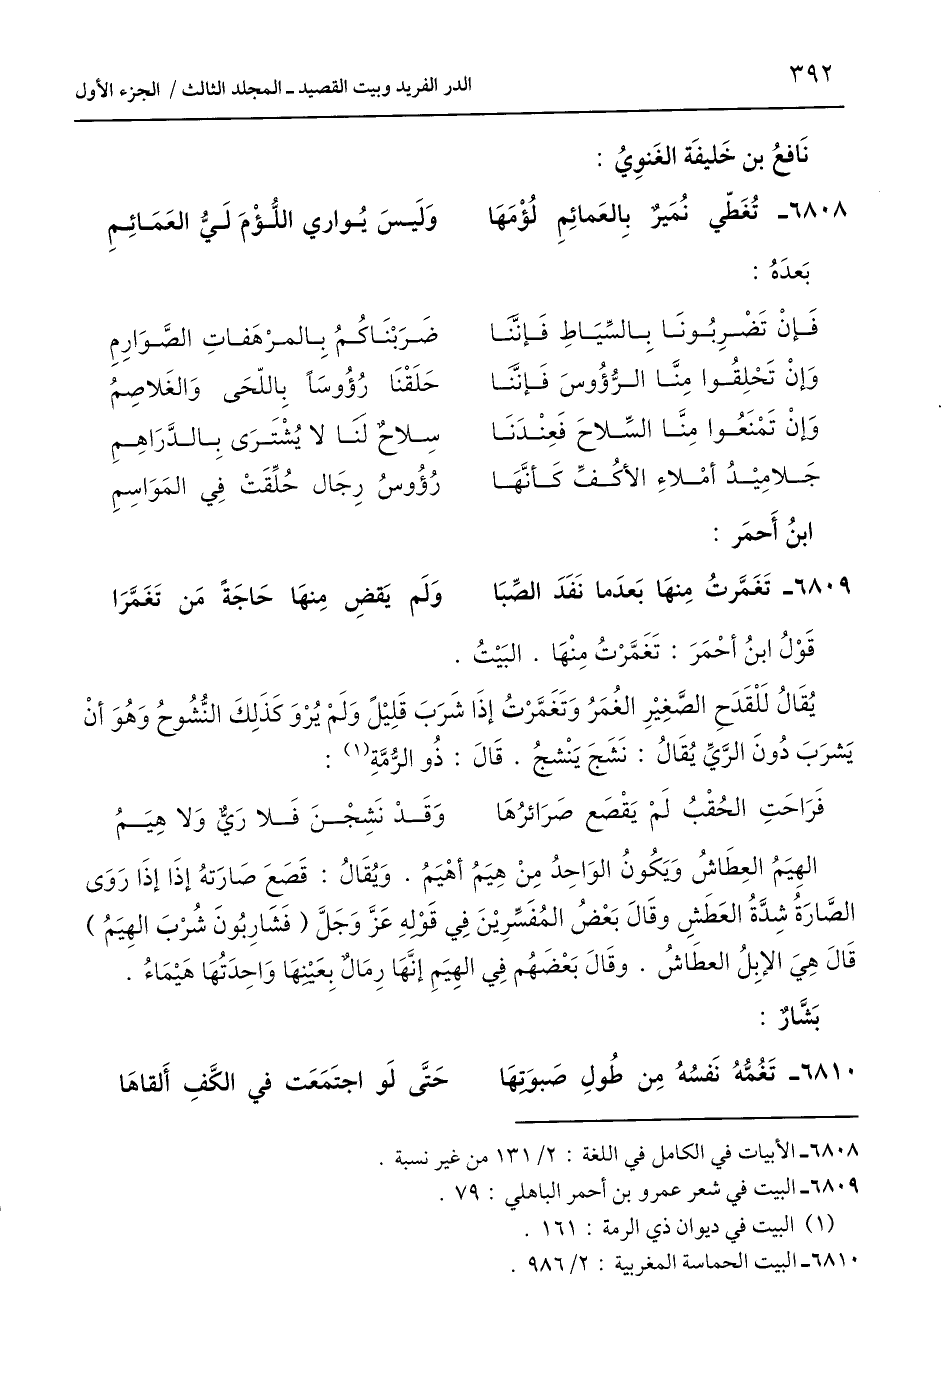 ٣٩٢
الدر الفريد وبيت القصيد ـ المجلد الثالث / الجزء الأول
نَافعُ بن خَليفَة الغَنويُّ :
٦٨٠٨ـ تُغَطّي نُمَيرٌ بِالعَمائِمِ لُؤمَهَا وَلَيسَ يُواري اللُّؤمَ لَيُّ العَمَائِمِ
بَعدَهُ :
فَإنْ تَضْرِبُونَا بِالسِّيَاطِ فَإنَّنَا ضَرَبْنَاكُمُ بِالمرْهَفَاتِ الصَّوَارِمِ
وَإنْ تَحْلِقُوا مِنَّا الرُّؤُوسَ فَإنَّنَا حَلَقْنَا رُؤُوسَاً بِاللّحَى وَالغَلاصِمُ
وَإنْ تَمْنَعُوا مِنَّا السِّلاحَ فَعِنْدَنَا سِلاحٌ لَنَا لا يُشْتَرَى بِالدَّرَاهِمِ
جَلامِيْدُ أمْلاءِ الأكُفِّ كَأنَّهَا رُؤُوسُ رِجَال حُلِّقَتْ فِي المَوَاسِمِ
ابنُ أَحمَر :
٦٨٠٩ـ تَغَمَّرتُ مِنهَا بَعدَما نَفَدَ الصِّبَا وَلَم يَقضِ مِنهَا حَاجَةً مَن تَغَمَّرَا
قَوْلُ ابنُ أحْمَرَ : تَغَمَّرْتُ مِنْهَا . البَيْتُ .
يُقَالُ لَلْقَدَحِ الصَّغِيْرِ الغُمَرُ وَتَغَمَّرْتُ إذَا شَرَبَ قَلِيْلٌ وَلَمْ يُرْوَ كَذَلِكَ النُّشُوحُ وَهُوَ أنْ
يَشرَبَ دُونَ الرَّيِّ يُقَالُ : نَشَجَ يَنْشجُ . قَالَ : ذُو الرُّمَّةِ(١) :
فَرَاحَتِ الحُقْبُ لَمْ يَقْصَع صَرَائرُهَا وَقَدْ نَشجْنَ فَلا رَيٌّ وَلا هِيَمُ
الهِيَمُ العِطَاشُ وَيَكُونُ الوَاحِدُ مِنْ هِيَمُ أهْيَمُ . وَيُقَالُ : قَصَعَ صَارَتهُ إذَا إذَا رَوَى
الصَّارَةُ شِدَّةُ العَطَشِ وقَالَ بَعْضُ المُفَسِّرِيْنَ فِي قَوْلِهِ عَزَّ وَجَلَّ ( فَشَارِبُونَ شُرْبَ الهِيَمُ )
قَالَ هِيَ الإبِلُ العطَاشُ . وقَالَ بَعْضهُم فِي الهِيَمِ إنَّهَا رِمَالٌ بِعَيْنِهَا وَاحِدَتُهَا هَيْمَاءُ .
بَشَّارٌ :
٦٨١٠ـ تَغُمُّهُ نَفسُهُ مِن طُولِ صَبوَتِهَا حَتَّى لَو اجتَمَعَت في الكَّفِ أَلقاهَا
٦٨٠٨ـ الأبيات في الكامل في اللغة : ٢/ ١٣١ من غير نسبة .
٦٨٠٩ـ البيت في شعر عمرو بن أحمر الباهلي : ٧٩ .
(١) البيت في ديوان ذي الرمة : ١٦١ .
٦٨١٠ـ البيت الحماسة المغربية : ٢/ ٩٨٦ .